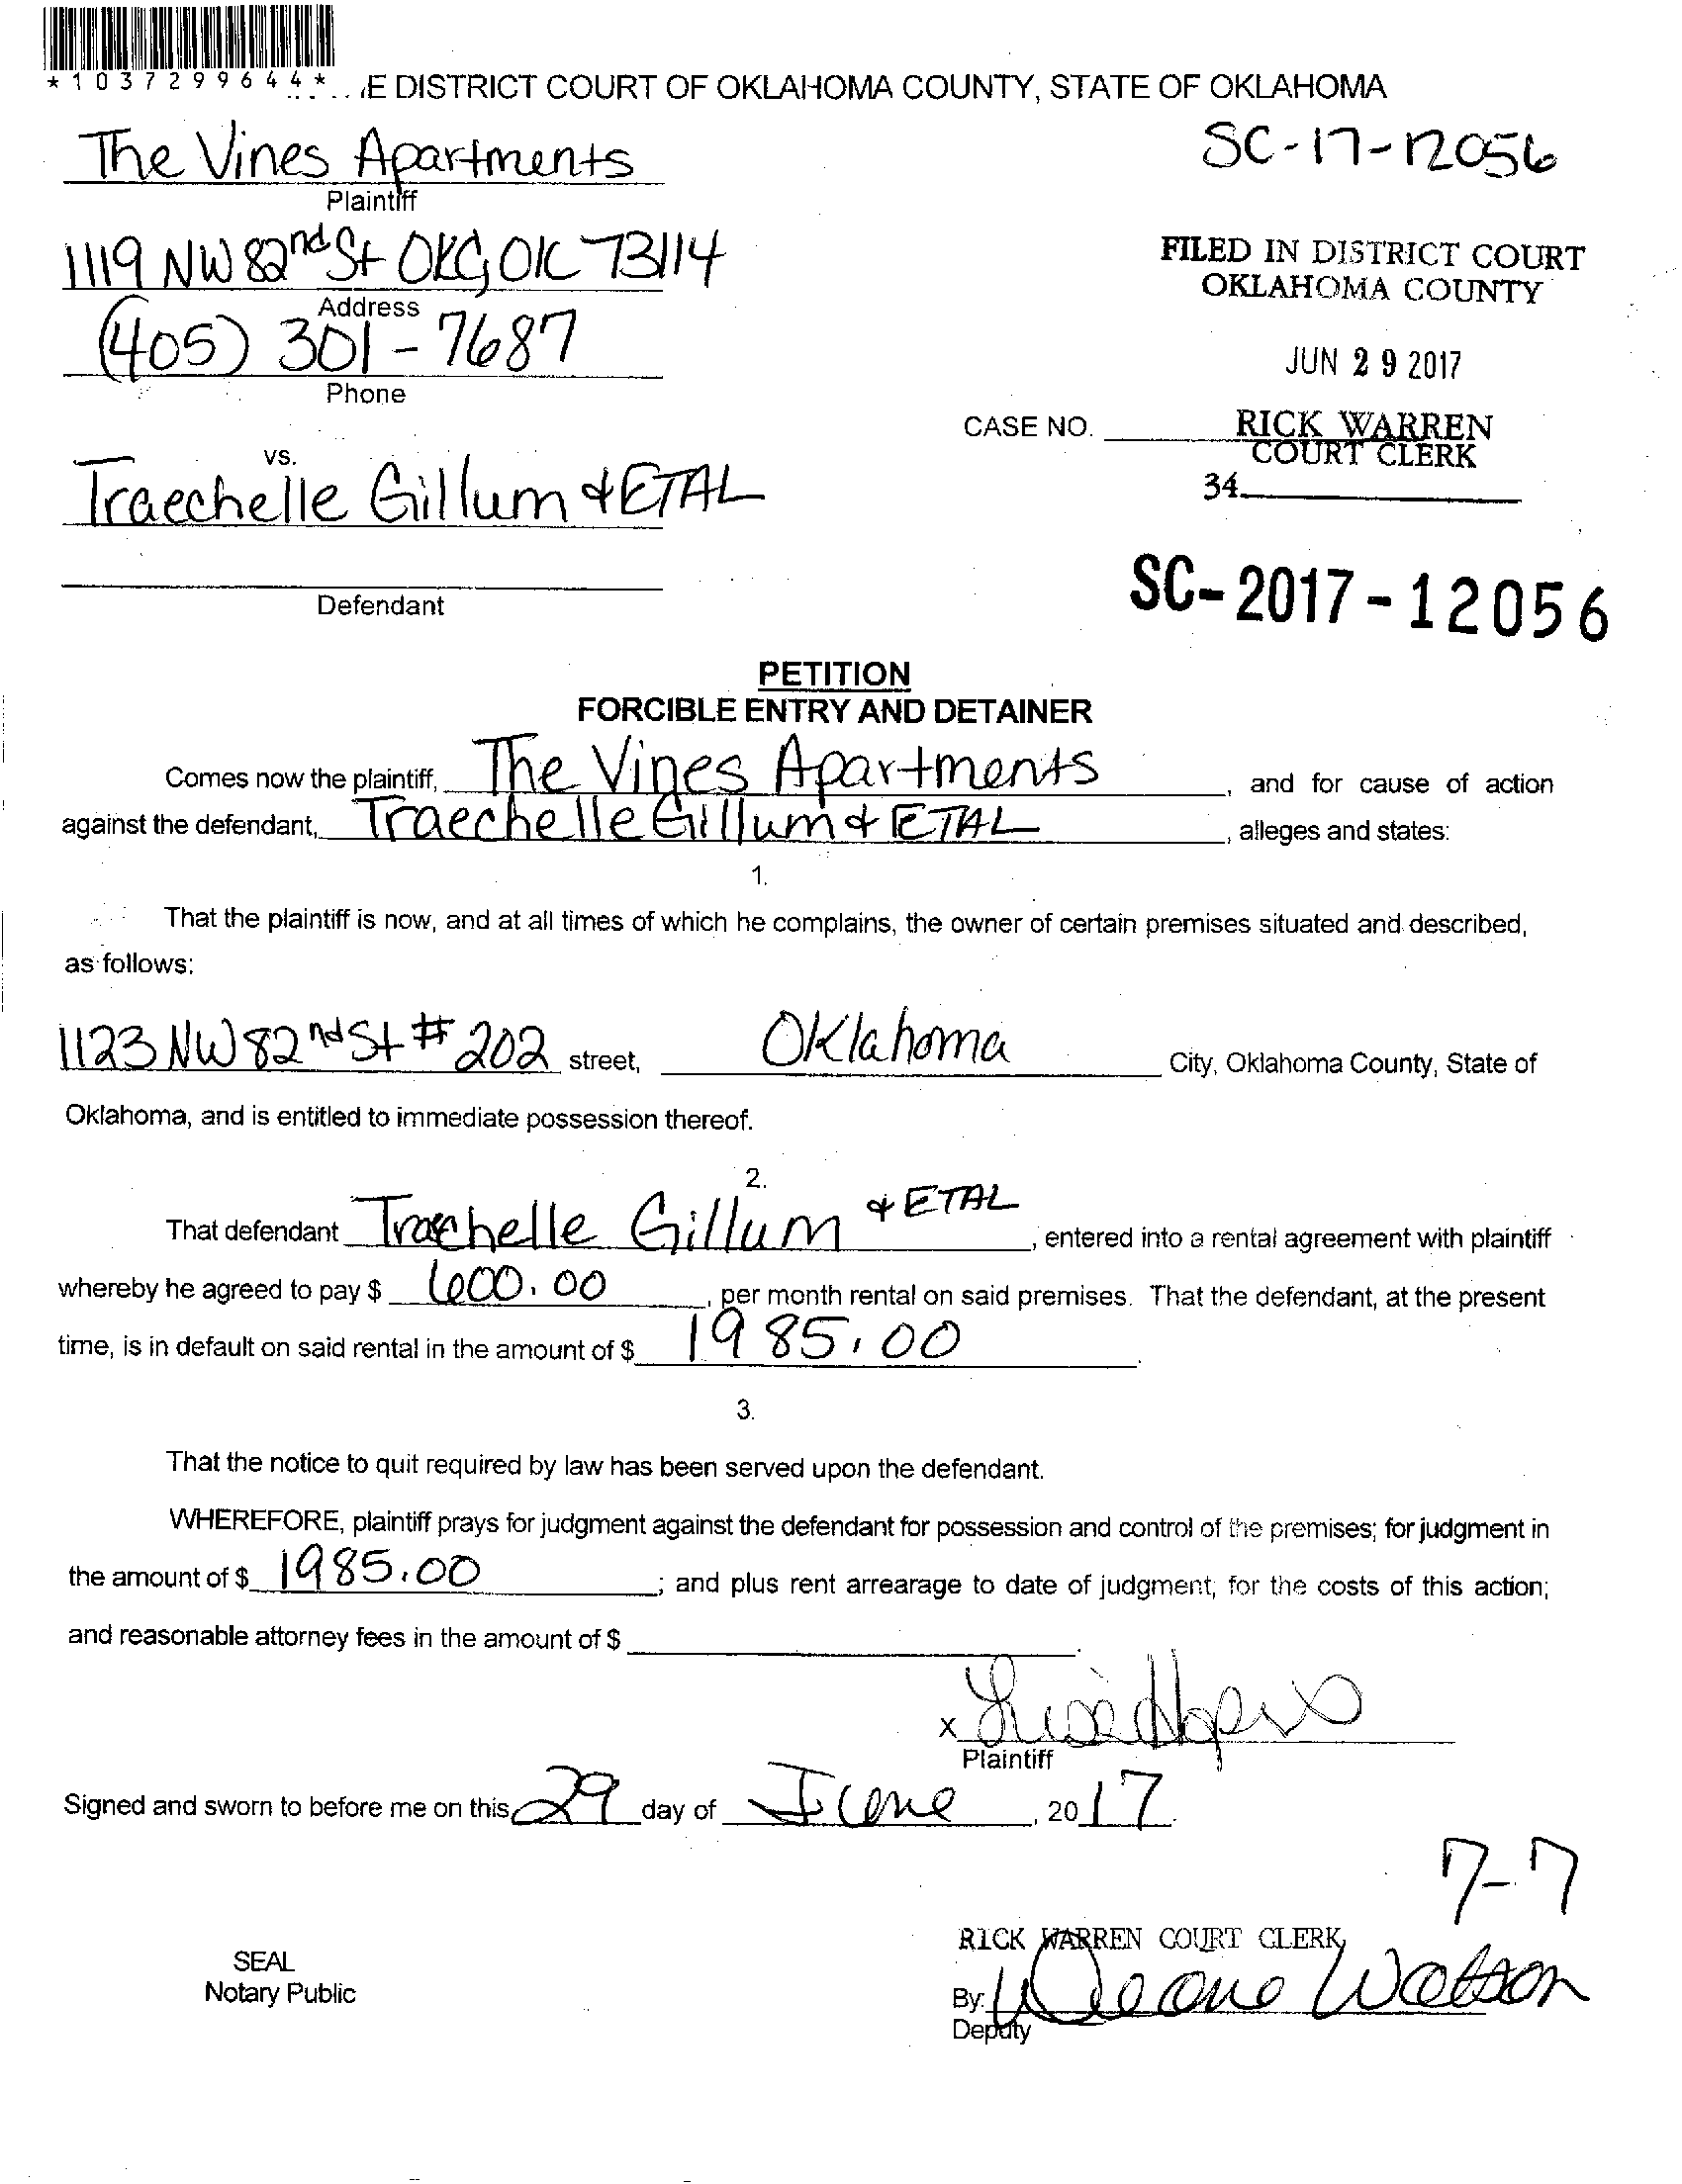 *1037299644*
E DISTRICT COURT OF OKLAHOMA COUNTY, STATE OF OKLAHOMA
The Vines Apartments
Plaintiff
SC-17-12056
1119 NW 82nd St OKC, OK 73114
Address
FILED IN DISTRICT COURT
OKLAHOMA COUNTY
(405) 301-7687
Phone
JUN 29 2017
CASE NO.
RICK WARREN
COURT CLERK
34
vs.
Traechelle Gillum & ETAL
Defendant
SC-2017-12056
PETITION
FORCIBLE ENTRY AND DETAINER
Comes now the plaintiff, The Vines Apartments, and for cause of action
against the defendant, Traechelle Gillum & ETAL, alleges and states:
1.
That the plaintiff is now, and at all times of which he complains, the owner of certain premises situated and described,
as follows:
1123 NW 82nd St # 202 street, Oklahoma City, Oklahoma County, State of
Oklahoma, and is entitled to immediate possession thereof.
2.
That defendant Traechelle Gillum & ETAL, entered into a rental agreement with plaintiff
whereby he agreed to pay $ 600.00, per month rental on said premises. That the defendant, at the present
time, is in default on said rental in the amount of $ 1985.00.
3.
That the notice to quit required by law has been served upon the defendant.
WHEREFORE, plaintiff prays for judgment against the defendant for possession and control of the premises; for judgment in
the amount of $ 1985.00; and plus rent arrearage to date of judgment; for the costs of this action;
and reasonable attorney fees in the amount of $ .
x
Plaintiff
Signed and sworn to before me on this 29 day of June, 2017.
7-7
RICK WARREN COURT CLERK
SEAL
Notary Public
By: Watson
Deputy